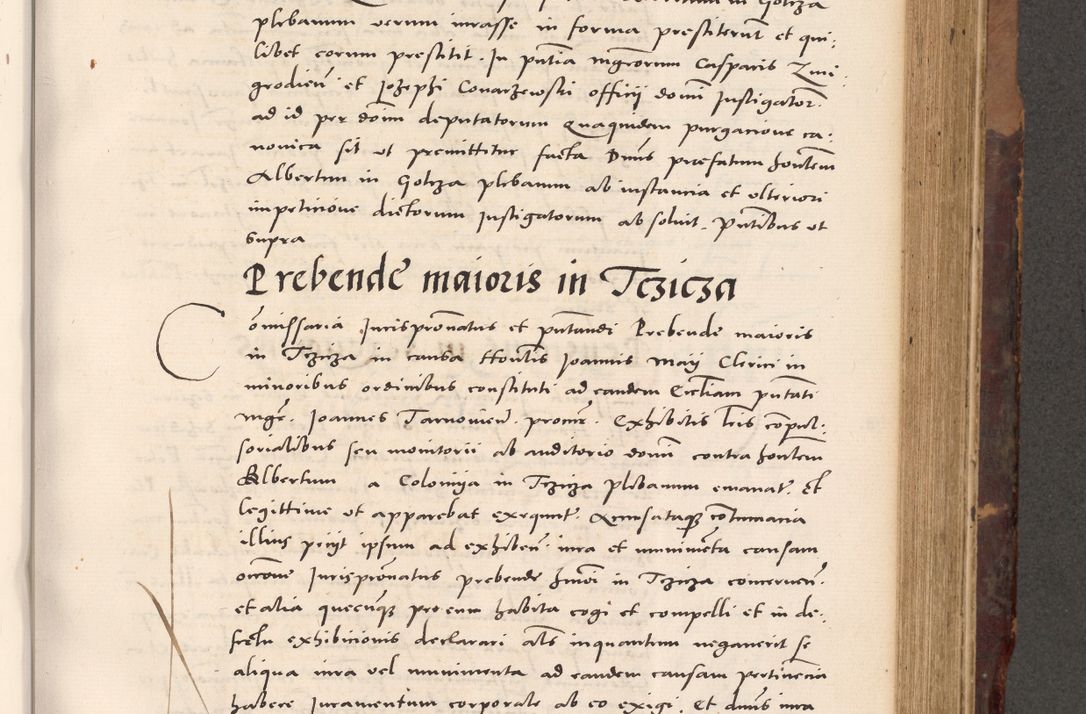 plebanum verum iurasse in forma prestiterunt et qui:
libet eorum prestitit. In pntia mgrorum Casparis Zmi:
grodien et Jozephi Conarzewski officii domini Instigator.
ad id per doim deputatorum Quaquidem purgacione ca:
nonica sit ut premittitur facta Dnus prefatum honem
Albertum in Goluza plebanum ab instancia et ulteriori
impeticione dictorum Instigatorum absoluit. Pntibus ut
supra
Prebende maioris in Tczicza
Comissaria Jurispronatus et pntandi Prebende maioris
in Tczicza in causa Honlis Joannis Maij Clerici in
minoribus ordinibus constituti ad eandem Eccliam pntati
mgr. Joannes Tarnovien. procur. Exhibitis lris compul:
sorialibus seu monitorii ab auditorio domini contra honem
Albertum a Colomija in Tczicza plebanum emanat. et
legittime ut apparebat exequut. Accusataque contumacia
illius petijt ipsum ad exhiben. iura et munimenta causam
Jurispronatus prebende hmoi in Tczicza concernen.
et alia quecunque pro eum habita cogi et compelli et in de:
fectu exhibicionis declarari als inquantum negauerit se
aliqua iura vel munimenta ad eandem causam pertinencia
habere Juramentum corporale ab eo exigi. Et dnus iura